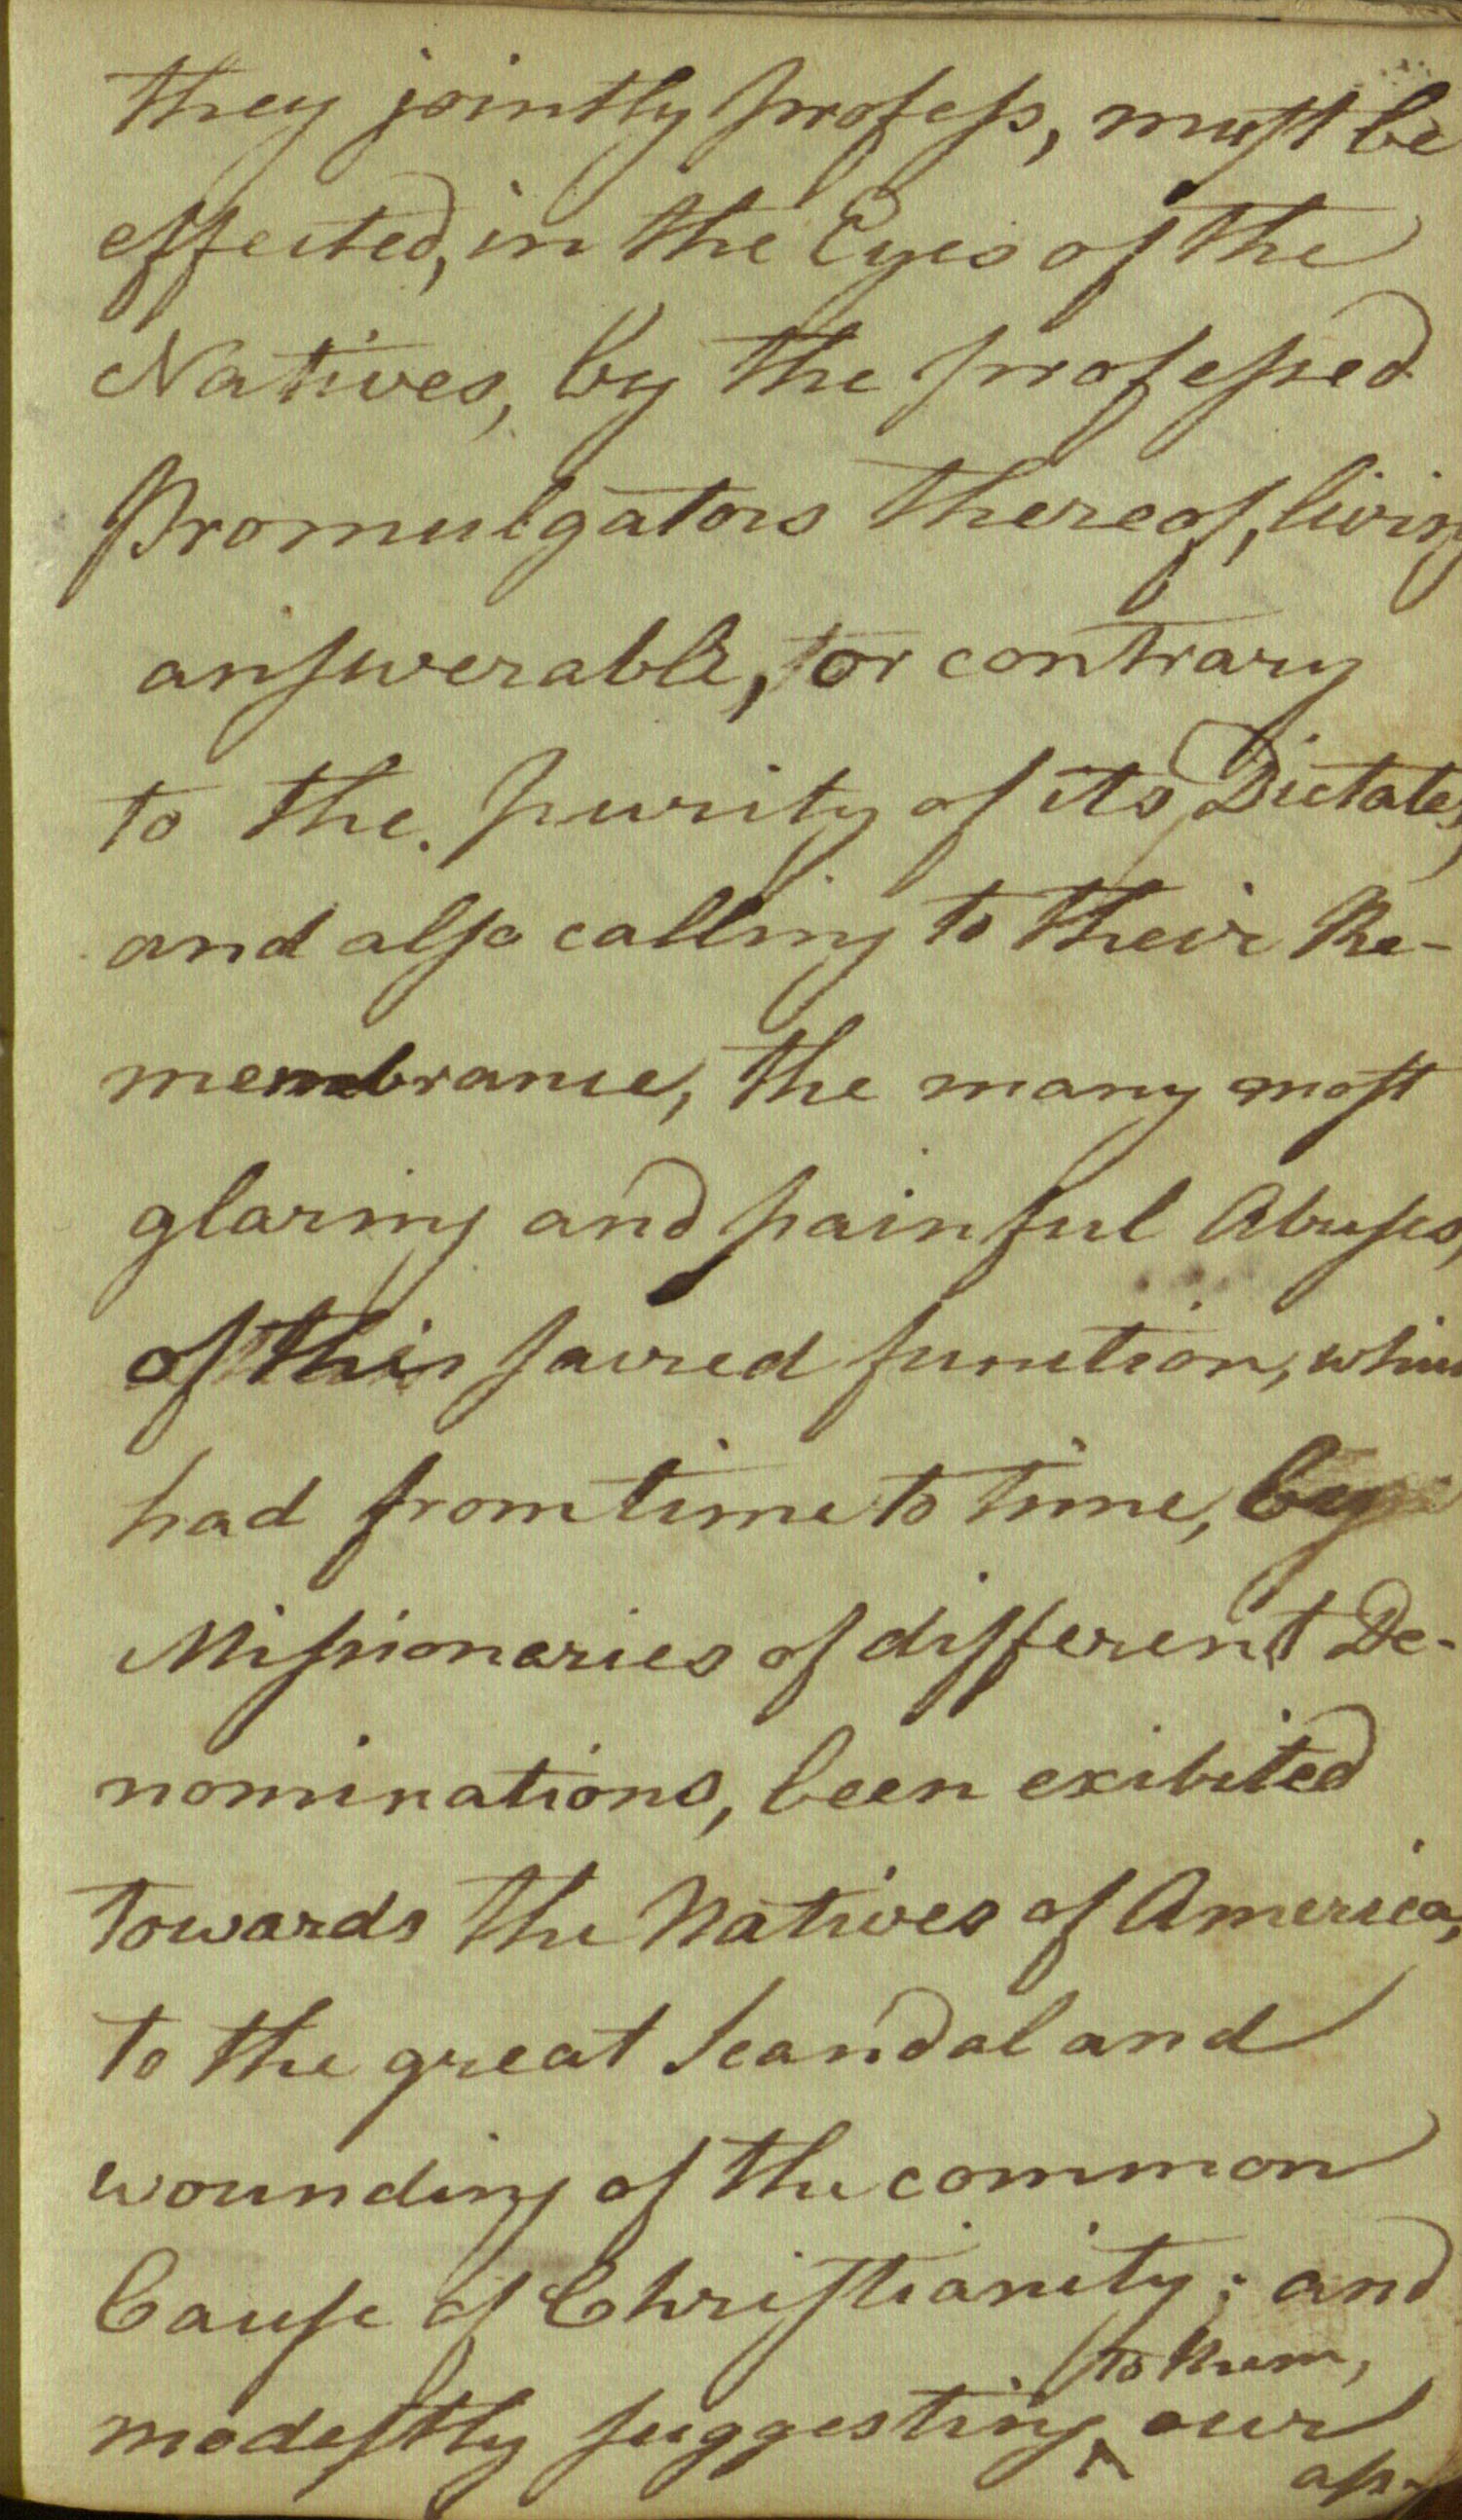 they jointly profess, must be
effected, in the Eyes of the
Natives, by the professed
Promulgators thereof, living
answerable, or contrary
to the purity of its Dictates,
and also calling to their Re-
membrance, the many most
glaring and painful Abuses,
of this sacred function, which
had from time to time, by
Missionaries of different De-
nominations, been exibited
towards the Natives of America,
to the great Scandal and
wounding of the common
Cause of Christianity; and
to them,
modestly suggesting ^ our
ap-